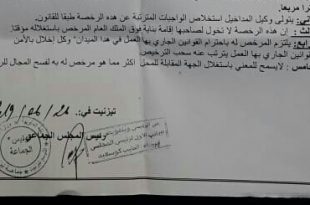 را مربعا.
ـاني: يتولى وكيل المداخيل استخلاص الواجبات المترتبة عن هذه الرخصة طبقا للقانون.
ـالث : إن هذه الرخصة لا تخول لصاحبها إقامة بناية فوق الملك العام المرخص باستغلاله مؤقتا.
ـرابع: يلتزم المرخص له باحترام القوانين الجاري بها العمل في هذا الميدان" وكل إخلال بالأمن
ـوانين الجاري بها العمل يترتب عنه سحب الترخيص
ـامس : لايسمح للمعني باستغلال الجهة المقابلة للمحل أكثر مما هو مرخص له به لفسح المجال للر
تيزنيت في:
رئيس المجلس الجماعي